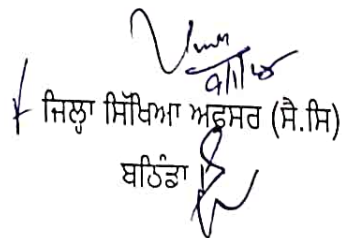 ਜਿਲ੍ਹਾ ਸਿੱਖਿਆ ਅਫ਼ਸਰ (ਸੈ.ਸਿ)
ਬਠਿੰਡਾ